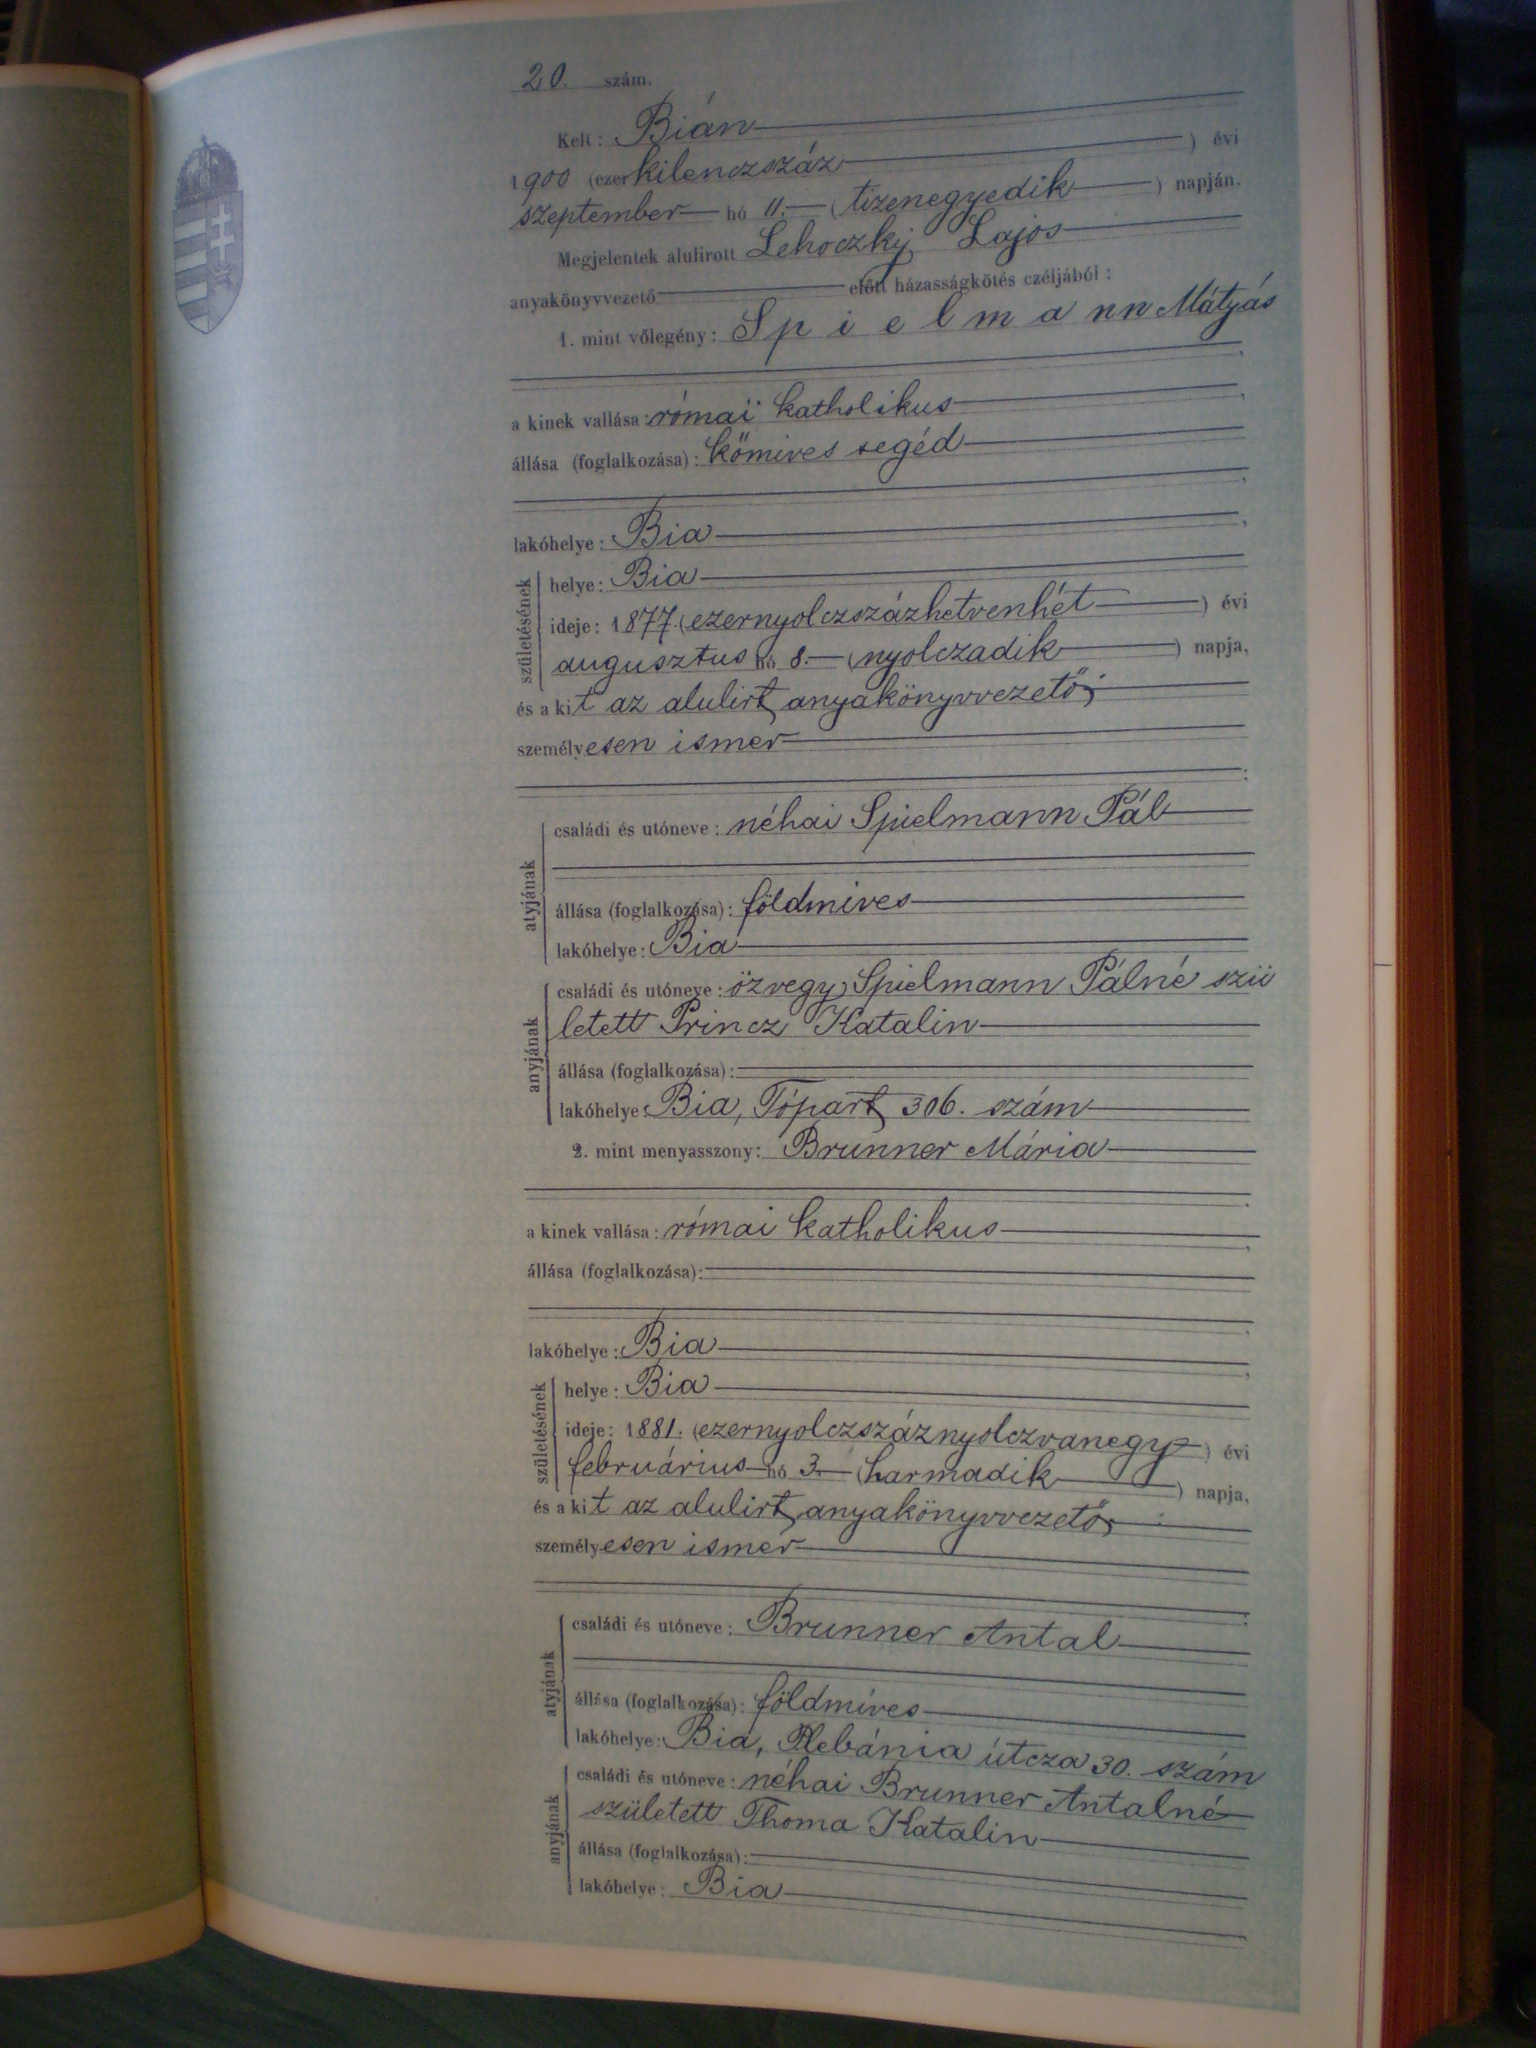 20. szám.
Kelt: Bián
1900 (ezerkilenczszáz) évi
szeptember hó 11. (tizenegyedik) napján.
Megjelentek alulirott Lehoczky Lajos
anyakönyvvezető előtt házasságkötés czéljából:
1. mint vőlegény: Spielmann Mátyás
a kinek vallása: római katholikus
állása (foglalkozása): kőmives segéd
lakóhelye: Bia
születésének
helye: Bia
ideje: 1877. (ezernyolczszázhetvenhét) évi
augusztus hó 8. (nyolczadik) napja,
és a kit az alulirt anyakönyvvezető
személyesen ismer
atyjának
családi és utóneve: néhai Spielmann Pál
állása (foglalkozása): földmives
lakóhelye: Bia
anyjának
családi és utóneve: özvegy Spielmann Pálné szü
letett Princz Katalin
állása (foglalkozása):
lakóhelye: Bia, Tópart 306. szám
2. mint menyasszony: Brunner Mária
a kinek vallása: római katholikus
állása (foglalkozása):
lakóhelye: Bia
születésének
helye: Bia
ideje: 1881. (ezernyolczszáznyolczvanegy) évi
február​ius hó 3. (harmadik) napja,
és a kit az alulirt anyakönyvvezető
személyesen ismer
atyjának
családi és utóneve: Brunner Antal
állása (foglalkozása): földmíves
lakóhelye: Bia, Plebánia útcza 30. szám
anyjának
családi és utóneve: néhai Brunner Antalné
született Thoma Katalin
állása (foglalkozása):
lakóhelye: Bia